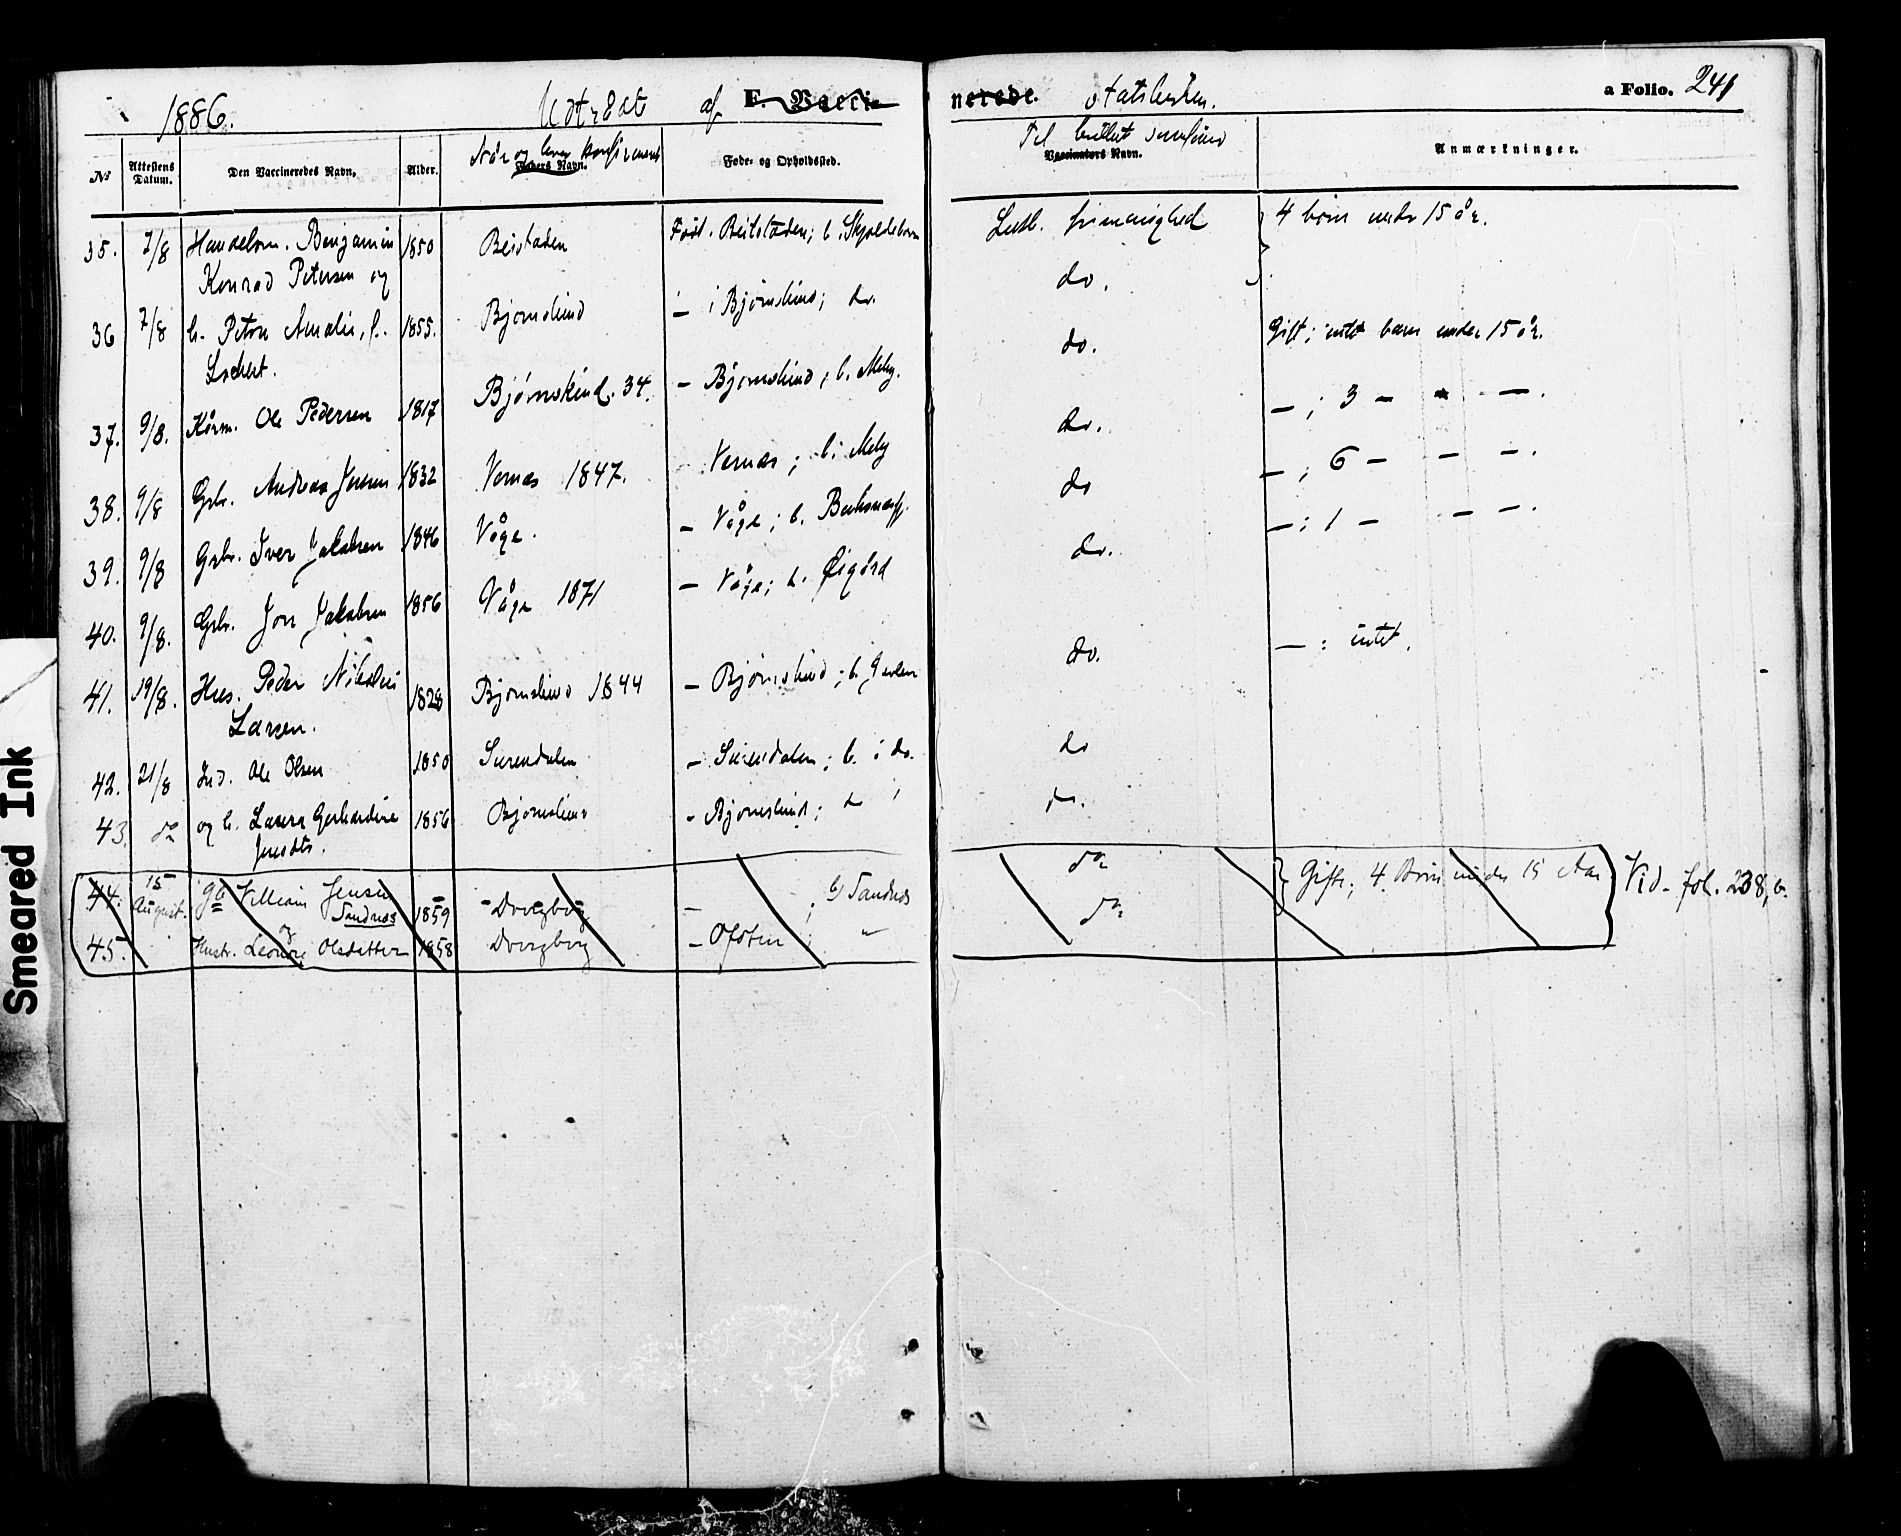 1886.
Udtrædt af F. Vacci-
nerede. statskirken.
a Folio. 241
No
Attestens Datum.
Den Vaccineredes Navn.
Alder.
Når og hvor konfirmeret
Faders Navn.
Føde- og Opholdssted.
Til hvilket samfund
Vaccinators Navn.
Anmærkninger.
35. 7/8 Handelsm. Benjamin 1850 Beistaden Født. Beitstaden; b. Skjoldehavn Luth. frimenighed 4 børn under 15 år.
Konrad Petersen og
36 7/8 h. Petra Amalie, f. 1855. Bjørnskind — i Bjørnskind; do. do.
37. 9/8. Kårm. Ole Pedersen 1817 Bjørnskind. 34. — Bjørnskind; b. Meby. do. Gift; intet barn under 15 år.
38. 9/8 Gbr. Andreas Jensen 1832 Vernæs 1847. Vernæs; b. Meby do. — ; 3 — — —.
39. 9/8 Gbr. Iver Jakobsen 1846 Våge. — Våge; b. do — ; 6 — — —.
40. 9/8. Gbr. Jon Jakobsen 1856 Våge 1871 — Våge; b. Øigård do. — : 1 — — —.
41. 19/8. Hus. Peder Nikolai 1828 Bjørnskind 1844 — Bjørnskind; b. do. — : intet.
Larsen.
42. 21/8 Ind. Ole Olsen 1850 Surendalen — Surendalen; b. i do. do
43. do og h. Laura Gerhardine 1856 Bjørnskind - Bjørnskind; do do.
44. 15 August. Gb Villiam Jensen 1859 - Dvergberg — ; b/ Sandnes do Gift; 4 Børn under 15 Aar Vid. fol. 238, b.
Sandnes
og
45. Hustr. Leonore Olsdatter 1858 Dvergberg — Ofoten " do
Smeared Ink